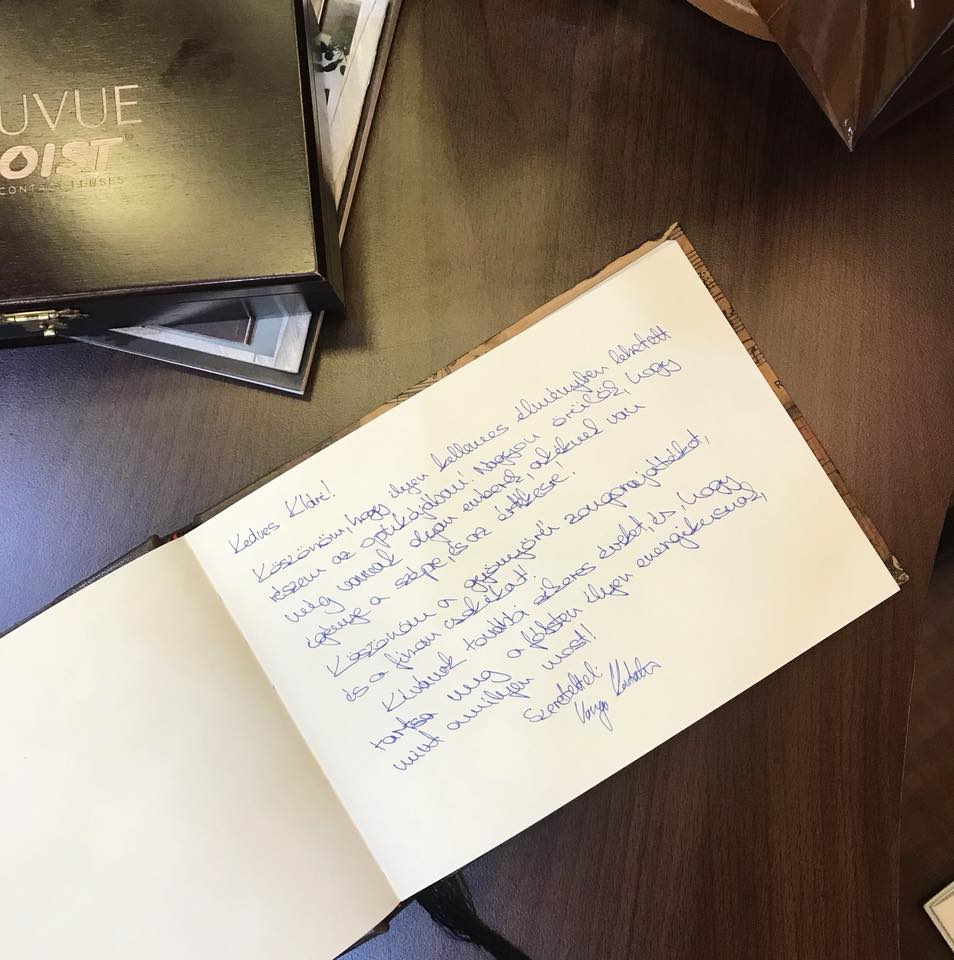 UVUE
OIST
CONTACT LENSES
Kedves Klári!
Köszönöm, hogy ilyen kellemes élményben lehetett
részem az optikájában! Nagyon örülök, hogy
még vannak olyan emberek, akiknek van
igénye a szépre, és az értékesre!
Köszönöm a gyönyörű zongorajátékot,
és a finom csokikat!
Kívánok további sikeres éveket, és, hogy
tartsa meg a Jóisten ilyen energikusnak,
mint amilyen most!
Szeretettel:
Varga